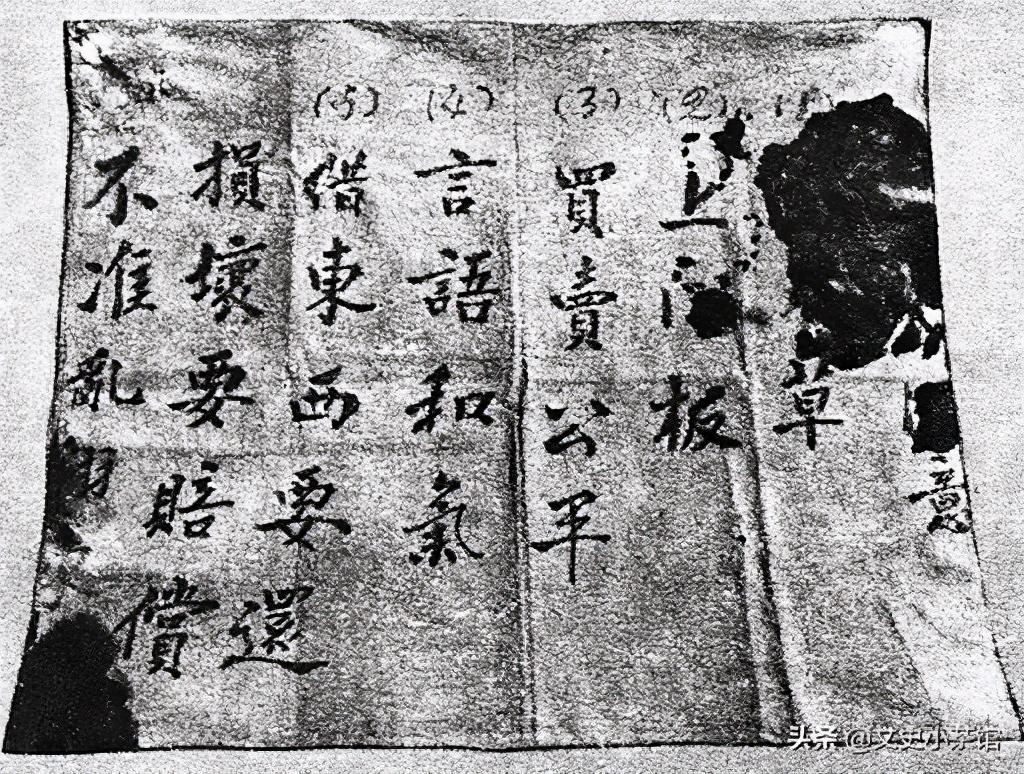 意
(1) 草
(2) 上 板
(3) 買賣公平
(4) 言語和氣
(5) 借東西要還
損壞要賠償
不准亂
头条 @文史小茶馆